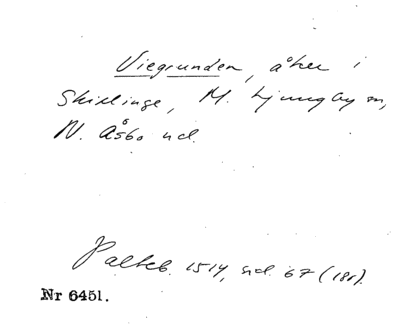 Viegrunden, åker i
Skillinge, M. Ljungby sn,
N. Åsbo hd.
Palteb. 1514, sid. 67 (181).
Nr 6451.